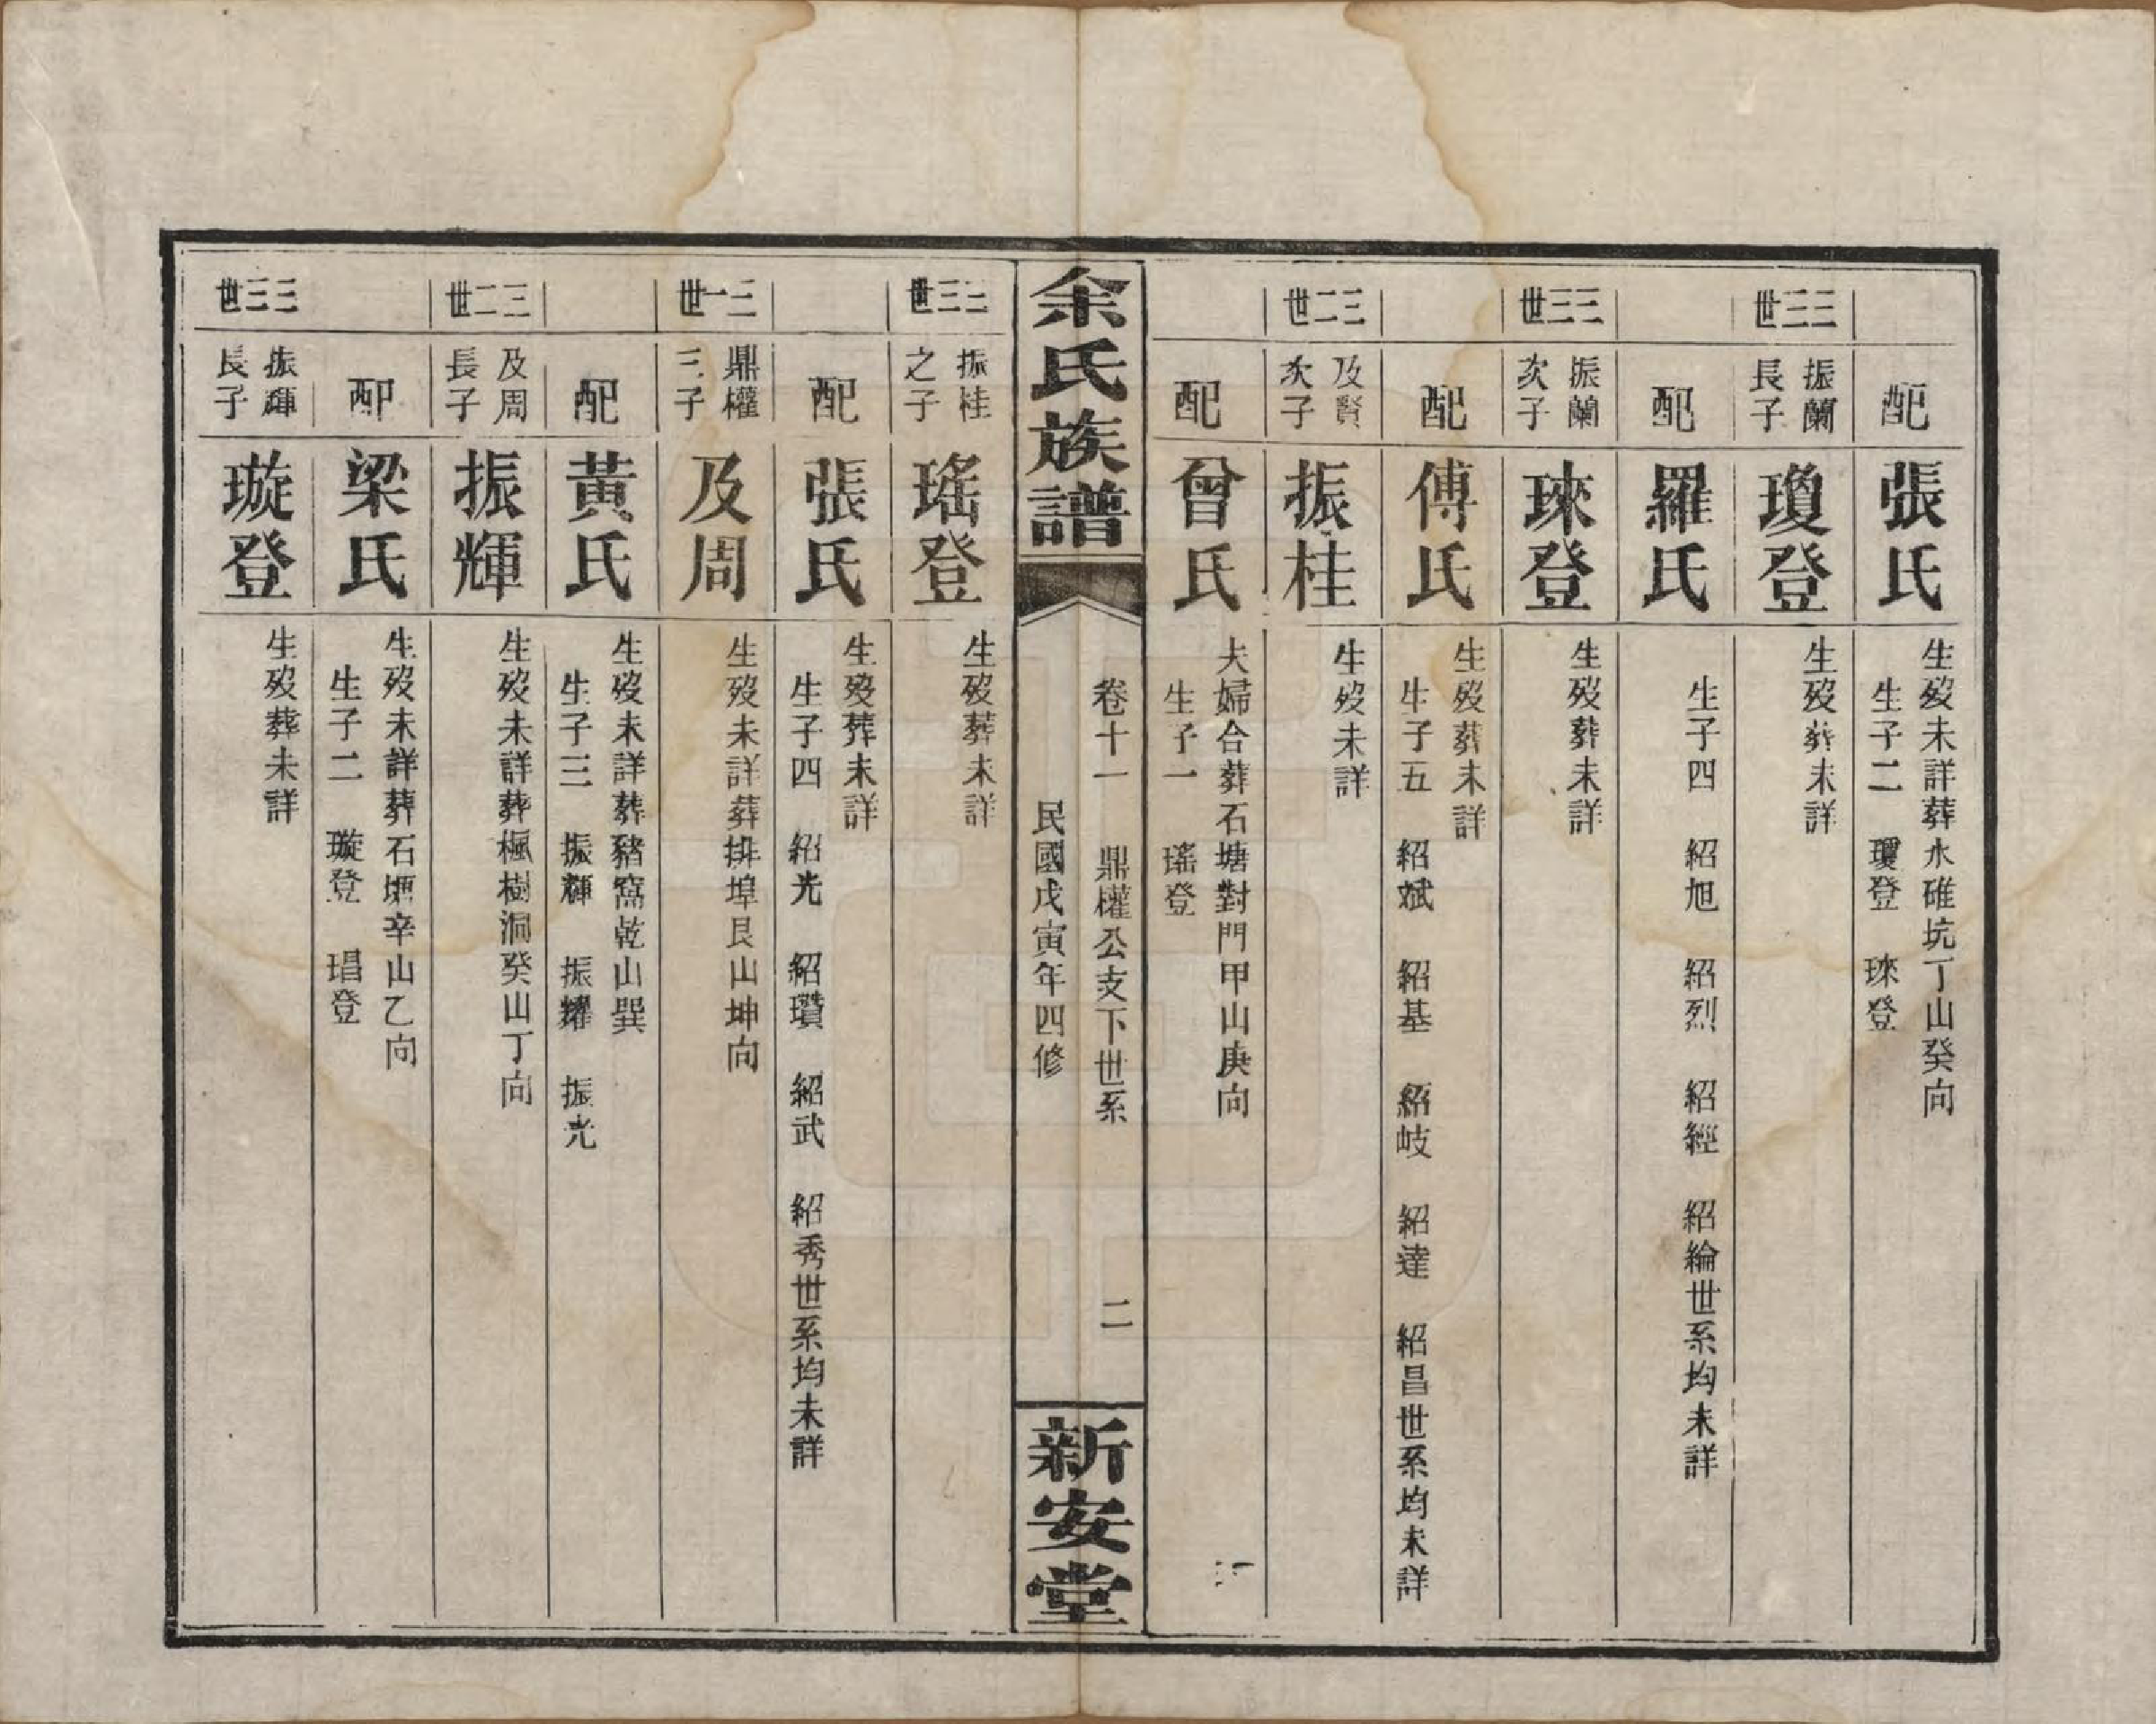 配
張氏
生歿未詳葬水碓坑丁山癸向
生子二 瓊登 琜登
三三世
振蘭
長子
瓊登
生歿葬未詳
配
羅氏
生子四 紹旭 紹烈 紹經 紹綸世系均未詳
三三世
振蘭
次子
琜登
生歿葬未詳
配
傅氏
生歿葬未詳
生子五 紹斌 紹基 紹岐 紹達 紹昌世系均未詳
三二世
及賢
次子
振桂
生歿未詳
配
曾氏
夫婦合葬石塘對門甲山庚向
生子一 瑤登
余氏族譜
卷十一 鼎權公支下世系 二
民國戊寅年四修
新安堂
三三世
振桂
之子
瑤登
生歿葬未詳
配
張氏
生歿葬未詳
生子四 紹光 紹瓚 紹武 紹秀世系均未詳
三一世
鼎權
三子
及周
生歿未詳葬排埠艮山坤向
配
黃氏
生歿未詳葬豬窩乾山巽
生子三 振輝 振耀 振光
三二世
及周
長子
振輝
生歿未詳葬楓樹洞癸山丁向
配
梁氏
生歿未詳葬石堰辛山乙向
生子二 璇登 琩登
三三世
振輝
長子
璇登
生歿葬未詳